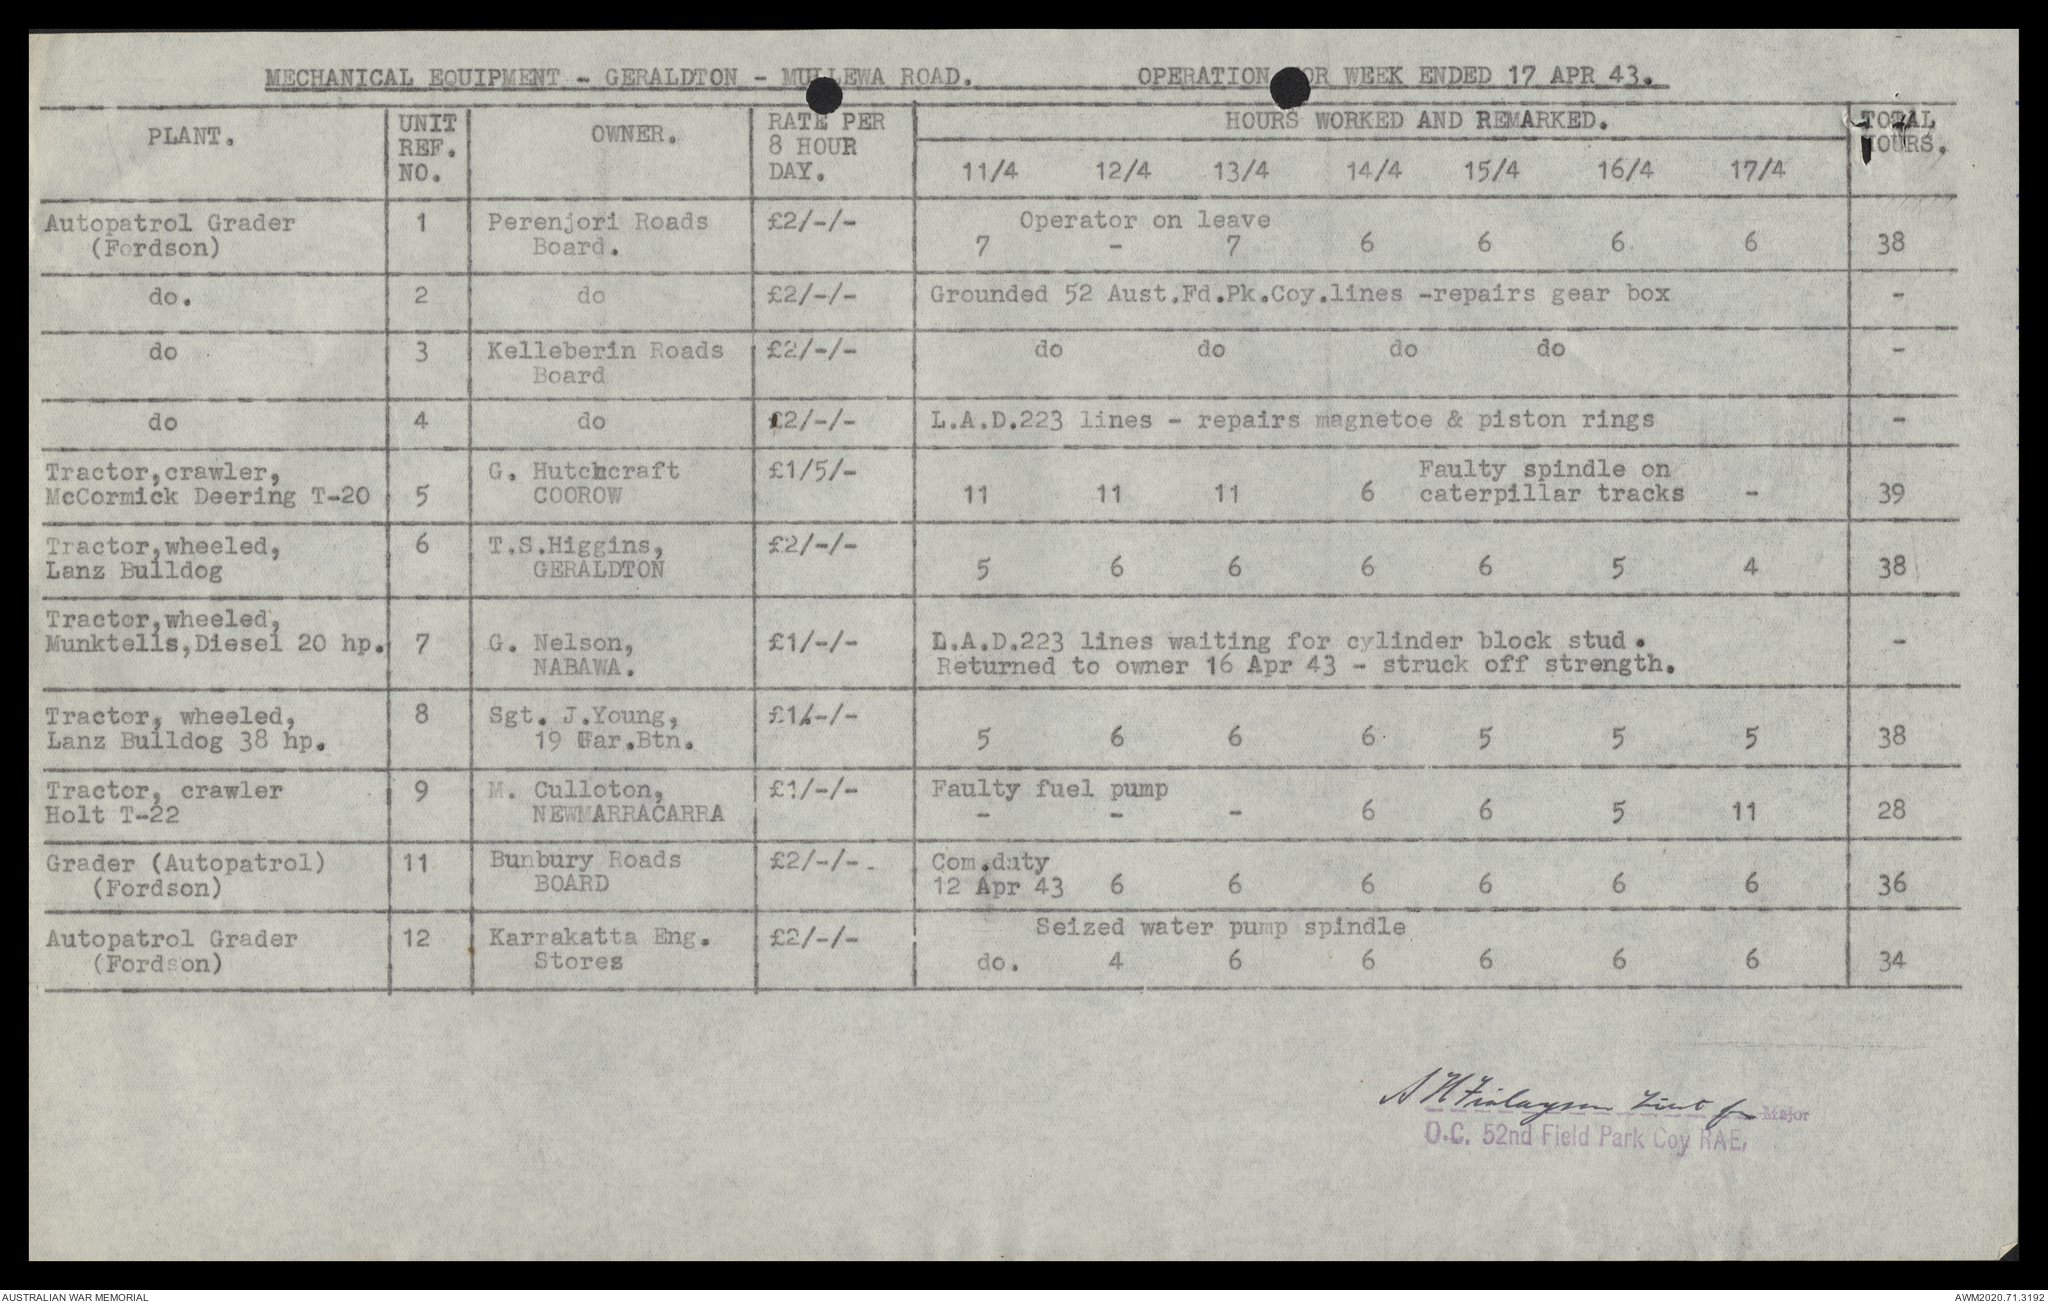 MECHANICAL EQUIPMENT - GERALDTON - MULLEWA ROAD. OPERATION FOR WEEK ENDED 17 APR 43.
PLANT. UNIT REF. NO. OWNER. RATE PER 8 HOUR DAY. HOURS WORKED AND REMARKED. TOTAL HOURS.
11/4 12/4 13/4 14/4 15/4 16/4 17/4
Autopatrol Grader 1 Perenjori Roads £2/-/- Operator on leave
(Fordson) Board. 7 - 7 6 6 6 6 38
do. 2 do £2/-/- Grounded 52 Aust.Fd.Pk.Coy.lines -repairs gear box -
do 3 Kelleberin Roads £2/-/- do do do do -
Board
do 4 do £2/-/- L.A.D.223 lines - repairs magnetoe & piston rings -
Tractor,crawler, G. Hutchcraft £1/5/- Faulty spindle on
McCormick Deering T-20 5 COOROW 11 11 11 6 caterpillar tracks - 39
Tractor,wheeled, 6 T.S.Higgins, £2/-/-
Lanz Bulldog GERALDTON 5 6 6 6 6 5 4 38
Tractor,wheeled,
Munktells,Diesel 20 hp. 7 G. Nelson, £1/-/- L.A.D.223 lines waiting for cylinder block stud. -
NABAWA. Returned to owner 16 Apr 43 - struck off strength.
Tractor, wheeled, 8 Sgt. J.Young, £1/-/-
Lanz Bulldog 38 hp. 19 Gar.Btn. 5 6 6 6 5 5 5 38
Tractor, crawler 9 M. Culloton, £1/-/- Faulty fuel pump
Holt T-22 NEWMARRACARRA - - - 6 6 5 11 28
Grader (Autopatrol) 11 Bunbury Roads £2/-/- . Com.duty
(Fordson) BOARD 12 Apr 43 6 6 6 6 6 6 36
Autopatrol Grader 12 Karrakatta Eng. £2/-/- Seized water pump spindle
(Fordson) Stores do. 4 6 6 6 6 6 34
A H Finlayson Lieut for Major
O.C. 52nd Field Park Coy RAE,
AUSTRALIAN WAR MEMORIAL AWM2020.71.3192